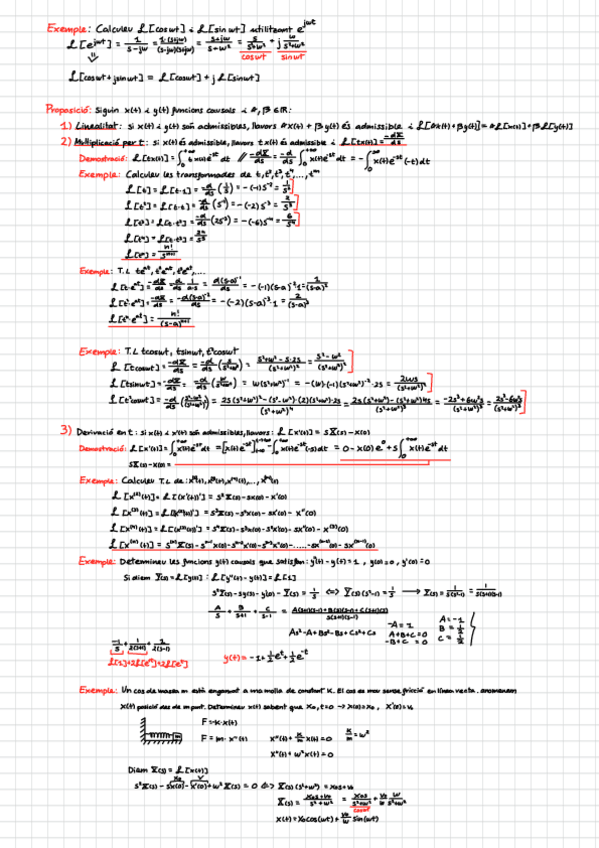 Exemple: Calculeu L[coswt] i L[sinwt] utilitzant e^jwt
L[e^jwt] = 1/(s-jw) = 1·(s+jw)/((s-jw)(s+jw)) = (s+jw)/(s²+w²) = s/(s²+w²) + j w/(s²+w²)
coswt sinwt
L[coswt + jsinwt] = L[coswt] + j L[sinwt]
Proposició: Siguin x(t) i y(t) funcions causals i α, β ∈ ℝ:
1) Linealitat: si x(t) i y(t) són admissibles, llavors αx(t) + βy(t) és admissible i L[αx(t)+βy(t)] = αL[x(t)] + βL[y(t)]
2) Multiplicació per t: si x(t) és admissible, llavors tx(t) és admissible i L[tx(t)] = -dX/ds
Demostració: L[tx(t)] = ∫₀^+∞ t x(t)e^-st dt // -dX/ds = -d/ds ∫₀^+∞ x(t)e^-st dt = -∫₀^+∞ x(t)e^-st (-t)dt
Exemple: Calculeu les transformades de t, t², t³, t⁴, ..., tⁿ
L[t] = L[t·1] = -d/ds (1/s) = -(-1)s^-2 = 1/s²
L[t²] = L[t·t] = -d/ds (s^-2) = -(-2)s^-3 = 2/s³
L[t³] = L[t·t²] = -d/ds (2s^-3) = -(-6)s^-4 = 6/s⁴
L[t⁴] = L[t·t³] = 24/s⁵
L[tⁿ] = n!/s^(n+1)
Exemple: T.L te^at, t²e^at, t³e^at, ...
L[t·e^at] = -dX/ds = -d/ds 1/(s-a) = -d(s-a)^-1/ds = -(-1)(s-a)^-2·1 = 1/(s-a)²
L[t²·e^at] = -dX/ds = -d(s-a)^-2/ds = -(-2)(s-a)^-3·1 = 2/(s-a)³
L[tⁿ·e^at] = n!/(s-a)^(n+1)
Exemple: T.L tcoswt, tsinwt, t²coswt
L[tcoswt] = -dX/ds = -d/ds (s/(s²+w²)) = -(s²+w²-s·2s)/(s²+w²)² = (s²-w²)/(s²+w²)²
L[tsinwt] = -dX/ds = -d/ds (w/(s²+w²)) = w(s²+w²)^-1 = -(w)·(-1)(s²+w²)^-2·2s = 2ws/(s²+w²)²
3) Derivació en t: si x(t) i x'(t) són admissibles, llavors: L[x'(t)] = sX(s)-x(0)
Demostració: L[x'(t)] = ∫₀^+∞ x'(t)e^-st dt = [x(t)e^-st]₀^+∞ - ∫₀^+∞ x(t)e^-st(-s)dt = 0-x(0)e⁰ + s∫₀^+∞ x(t)e^-st dt
sX(s)-x(0) =
Exemple: Calculeu T.L de: x''(t), x'''(t), x⁽⁴⁾(t), ..., x⁽ⁿ⁾(t)
Exemple: Determineu les funcions y(t) causals que satisfan: y''(t)-y(t)=1, y(0)=0, y'(0)=0
Si diem Y(s) = L[y(t)] : L[y''(t)-y(t)] = L[1]
s²Y(s)-sy(0)-y'(0)-Y(s) = 1/s <=> Y(s)(s²-1) = 1/s → Y(s) = 1/(s(s²-1)) = 1/(s(s+1)(s-1))
A/s + B/(s+1) + C/(s-1) = (A(s+1)(s-1)+B(s)(s-1)+C(s+1)(s))/(s(s+1)(s-1))
As²-A+Bs²-Bs+Cs²+Cs
-A=1
A+B+C=0
-B+C=0
A=-1
B=1/2
C=1/2
-1/s + 1/(2(s+1)) + 1/(2(s-1))
y(t) = -1+½e^t+½e^-t
Exemple: Un cos de massa m està enganxat a una molla de constant K. El cos es mou sense fricció en línea recta.
F=-K·x(t)
F=m·x''(t) x''(t)+K/m x(t)=0 K/m=w²
x''(t)+w²x(t)=0
Diem X(s) = L[x(t)]
s²X(s)-sx(0)-x'(0)+w²X(s)=0 <=> X(s)(s²+w²)=x₀s+v₀
X(s) = (x₀s+v₀)/(s²+w²) = x₀s/(s²+w²) + v₀/w w/(s²+w²)
x(t)=x₀cos(wt)+v₀/w sin(wt)